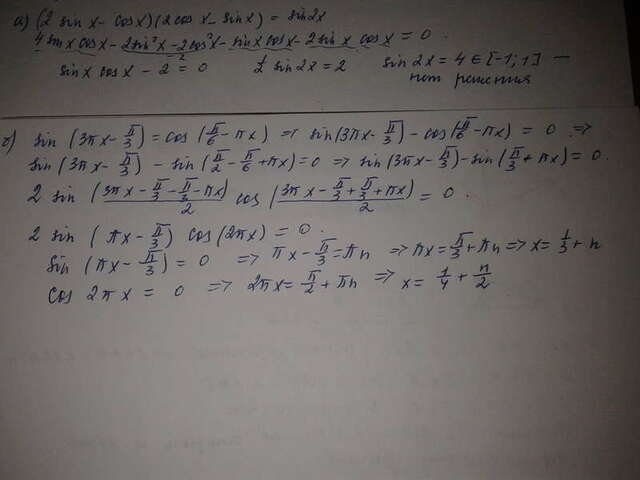 а) (2 sin x - cos x)(2 cos x - sin x) = sin 2x
4 sin x cos x - 2 sin² x - 2 cos² x - sin x cos x - 2 sin x cos x = 0.
sin x cos x - 2 = 0    ½ sin 2x = 2    sin 2x = 4 ∈ [-1; 1] —
нет решения
б) sin (3πx - π/3) = cos (π/6 - πx) => sin (3πx - π/3) - cos (π/6 - πx) = 0 =>
sin (3πx - π/3) - sin (π/2 - π/6 + πx) = 0 => sin (3πx - π/3) - sin (π/3 + πx) = 0.
2 sin ((3πx - π/3 - π/3 - πx)/2) cos ((3πx - π/3 + π/3 + πx)/2) = 0.
2 sin (πx - π/3) cos (2πx) = 0.
sin (πx - π/3) = 0 => πx - π/3 = πn => πx = π/3 + πn => x = 1/3 + n
cos 2πx = 0 => 2πx = π/2 + πn => x = 1/4 + n/2